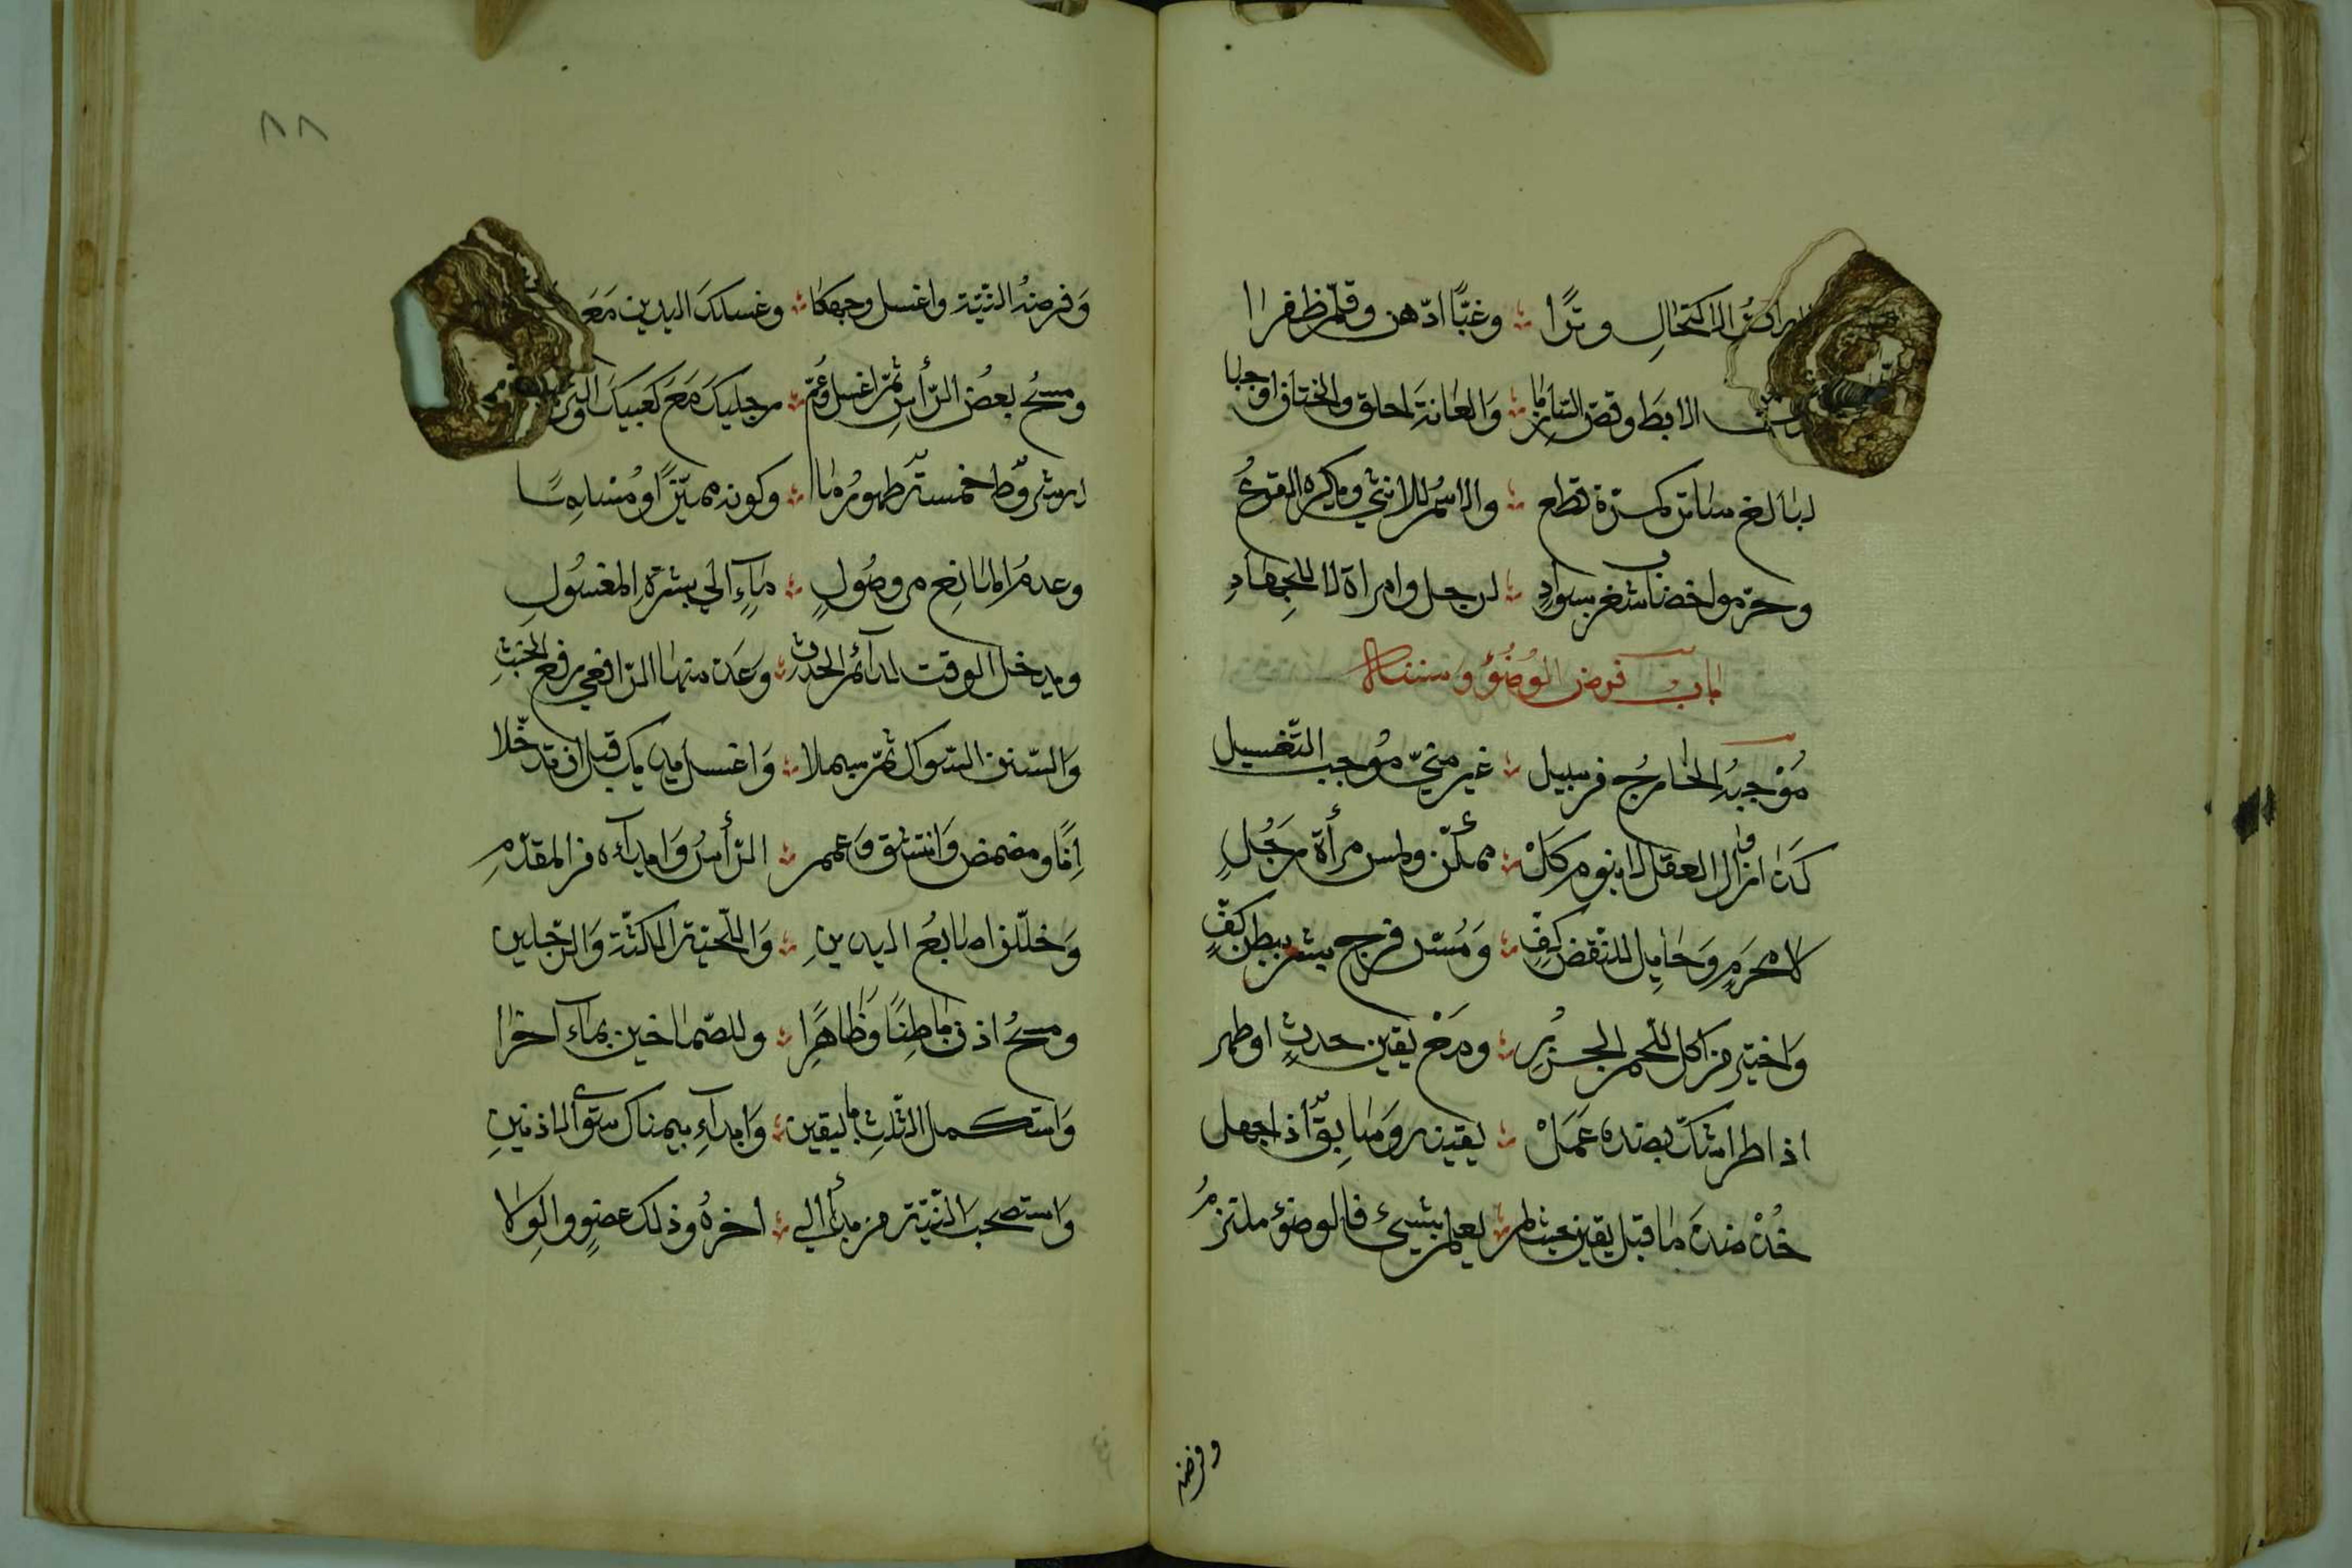 الاكتحال وترًا ∴ وغبًّا ادّهن وقلّم ظفرا
الابط وقصّ الشاربا ∴ والعانة احلق والختان اوجبا
لبالغ ساتر كمرة قطع ∴ والاسم للانثي ويكره القزع
وحرّموا خضاب شعر بسواد ∴ لرجل وامراة لا للجهاد
باب فرض الوضوء وسننه
موجبه الخارج من سبيل ∴ غير منيّ موجب التغسيل
كذا زوال العقل لا بنوم كل ∴ ممكّن ولمس مرأة رجل
لا محرم وحائل للنقض كف ∴ ومسّ فرج بشر ببطن كف
واختير من اكل للحم الجزر ∴ ومع يقين حدث او طهر
اذا طرا شكّ بضده عمل ∴ يقينه وسابق اذا جهل
خذ ضد ما قبل يقين حيث لم ∴ يعلم بشيئ فالوضوء ملتزم
وفرضه
٨٨
وفرضه النيّة واغسل وجهكا ∴ وغسلك اليدين مع
ومسح بعض الرأس ثمّ اغسل وعم ∴ رجليك مع كعبيك والترتيب
شروط خمسة طهور ما ∴ وكونه مميّزًا ومسلما
وعدم المانع من وصول ∴ مآء الي بشرة المغسول
ويدخل الوقت لدآئم الحدث ∴ وعد منها الرافعي رفع الخبث
والسنن السواك ثمّ بسملا ∴ واغسل يديك قبل ان تدخلا
إنًا ومضمض وانتشق وعمم ∴ الرأس وابدأه من المقدّم
وخلّلن اصابع اليدين ∴ واللّحية الكثّة والرّجلين
ومسح اذن باطنًا وظاهرًا ∴ وللصماخين بمآء اخرا
واستكمل الثلث باليقين ∴ وابدآء بيمناك سوي الاذنين
واستصحب النيّة من بدأ الي ∴ اخره وذلك عضو والولا